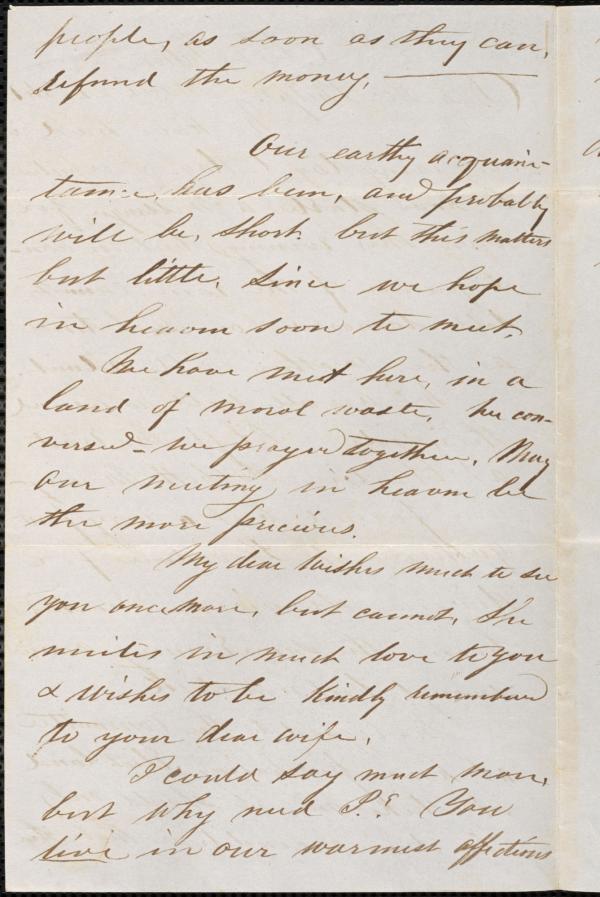 people, as soon as they can,
refund the money. ———
Our earthy acquain-
tance, has been, and probably
will be, short. but this matters
but little, since we hope
in heaven soon to meet.
We have met here, in a
land of moral waste, we con-
versed - we prayed together. May
our meeting in heaven be
the more precious.
My dear wishes much to see
you once more, but cannot. She
unites in much love to you
& wishes to be kindly remembered
to your dear wife.
I could say much more,
but why need I? You
live in our warmest affections